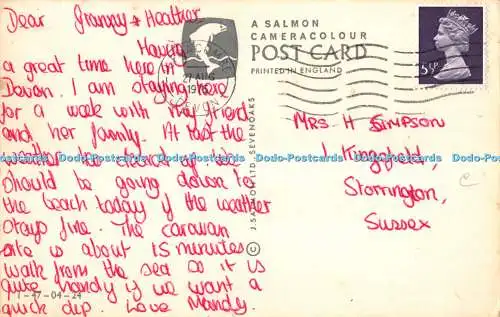 Dear Granny & Heather
Having
a great time here in
Devon. I am staying here
for a week with my friend
and her family. At last the
weather has
should be going down to
the beach today if the weather
stays fine. The caravan
site is about 15 minutes
walk from the sea so it is
quite handy if we want a
quick dip. Love Mandy.
1-47-04-24
A SALMON
CAMERACOLOUR
POST CARD
PRINTED IN ENGLAND
© J. SALMON LTD. SEVENOAKS
27 AUG
1975
DEVON
5½P
MRS. H SIMPSON
1 Kingsfield,
Storrington,
Sussex
Dodo-Postcards Dodo-Postcards Dodo-Postcards Dodo-Postcards Dodo-Postcards